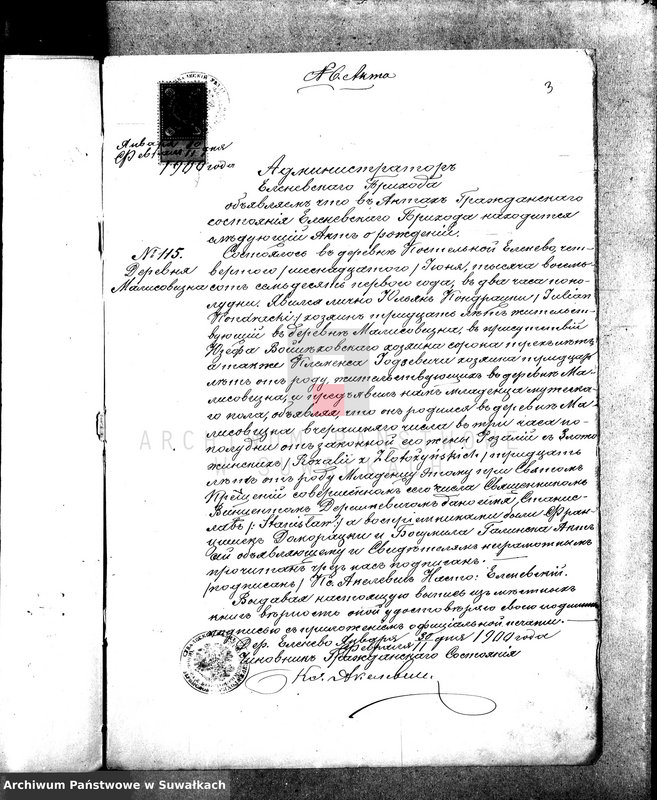 Къ Акта
3
Января 30 дня
Февраля 11
1900 года
Администраторъ
Еленевскаго Прихода
объявляетъ что въ Актахъ Гражданскаго
состоянія Еленевскаго Прихода находится
слѣдующій Актъ о рожденіи.
№ 115.
Деревня
Малисовизна
Состоялось въ деревнѣ Костельной Еленево, чет-
вертаго /шестнадцатаго/ Іюня, тысяча восемь-
сотъ семьдесятъ перваго года, въ два часа попо-
лудни. Явился лично Юліянъ Кондрацки /Julian
Kondracki/ хозяинъ тридцать лѣтъ жительст-
вующій въ деревнѣ Малисовизна, въ присутствіи
Юзефа Войцѣховскаго хозяина сорока трехъ лѣтъ
а также Клеменса хозяина тридцать
лѣтъ отъ роду, жительствующихъ въ деревнѣ Ма-
лисовизна, и предъявилъ намъ младенца мужеска-
го пола, объявляя, что онъ родился въ деревнѣ Ма-
лисовизна вчерашняго числа въ три часа по-
полудни отъ законной его жены Розаліи съ Злото-
жинскихъ /Rozalii z Złotorzyńskich/ тридцать
лѣтъ отъ роду. Младенцу этому при Святомъ
Крещеніи совершенномъ сего числа Священникомъ
дано имя Станис-
лавъ /:Stanisław:/ а воспріемниками были Фран-
цишекъ Доморацки и Богумила Галинска. Актъ
сей объявляющему и Свидѣтелямъ неграмотнымъ
прочитанъ чрезъ насъ подписанъ. —
/подписанъ/ Кс. Акелевичъ Насто: Еленевскій.
Выдавая настоящую выпись изъ мѣстныхъ
книгъ вѣрность оной удостовѣряю своею
подписью съ приложеніемъ официальной печати. —
Дер. Еленево Января 30 дня 1900 года
Февраля 11
Чиновникъ Гражданскаго Состоянія
Кс. Акелевич.
ARCHIWUM PAŃSTWOWE
W SUWAŁKACH
Archiwum Państwowe w Suwałkach